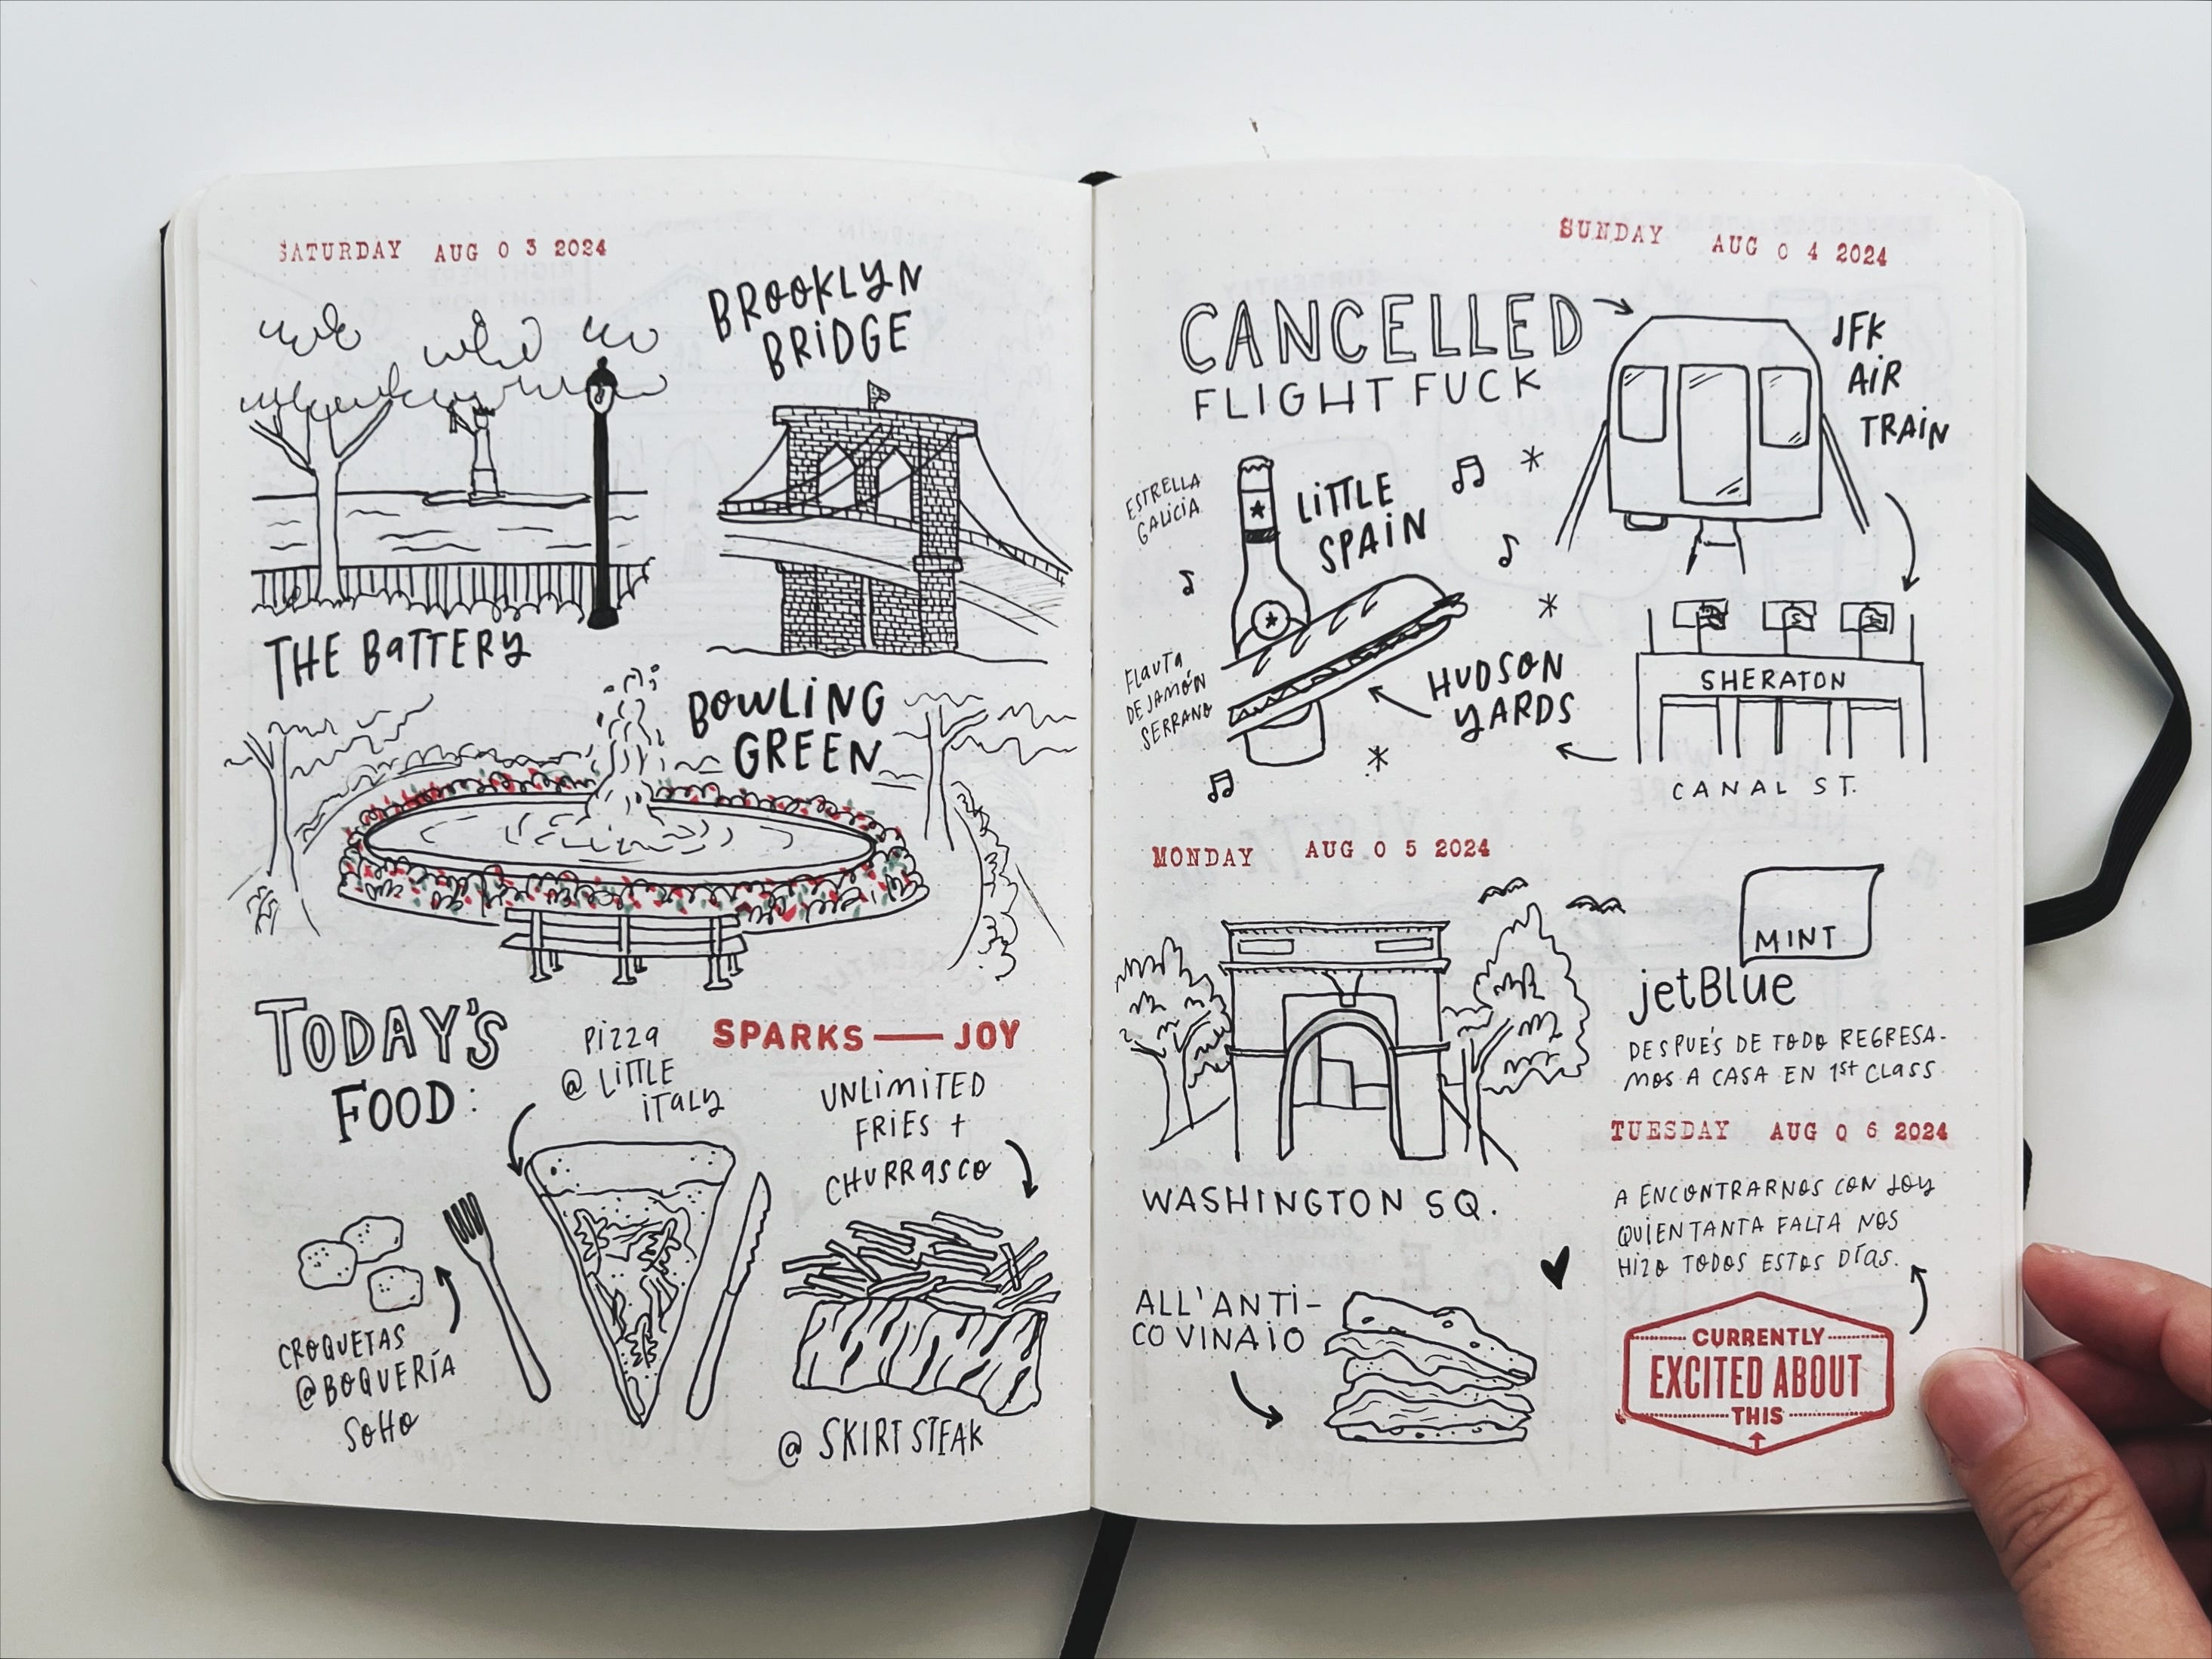 SATURDAY AUG 0 3 2024
BROOKLYN
BRIDGE
THE BATTERY
BOWLING
GREEN
TODAY'S
FOOD:
PIZZA
@ LITTLE
ITALY
SPARKS — JOY
UNLIMITED
FRIES +
CHURRASCO
CROQUETAS
@BOQUERÍA
SOHO
@ SKIRT STEAK
SUNDAY AUG 0 4 2024
CANCELLED
FLIGHT FUCK
JFK
AIR
TRAIN
ESTRELLA
GALICIA
LITTLE
SPAIN
FLAUTA
DE JAMÓN
SERRANO
HUDSON
YARDS
SHERATON
CANAL ST.
MONDAY AUG 0 5 2024
WASHINGTON SQ.
MINT
jetBlue
DESPUÉS DE TODO REGRESA-
MOS A CASA EN 1st CLASS
ALL'ANTI-
CO VINAIO
TUESDAY AUG 0 6 2024
A ENCONTRARNOS CON JOY
QUIEN TANTA FALTA NOS
HIZO TODOS ESTOS DÍAS.
CURRENTLY
EXCITED ABOUT
THIS